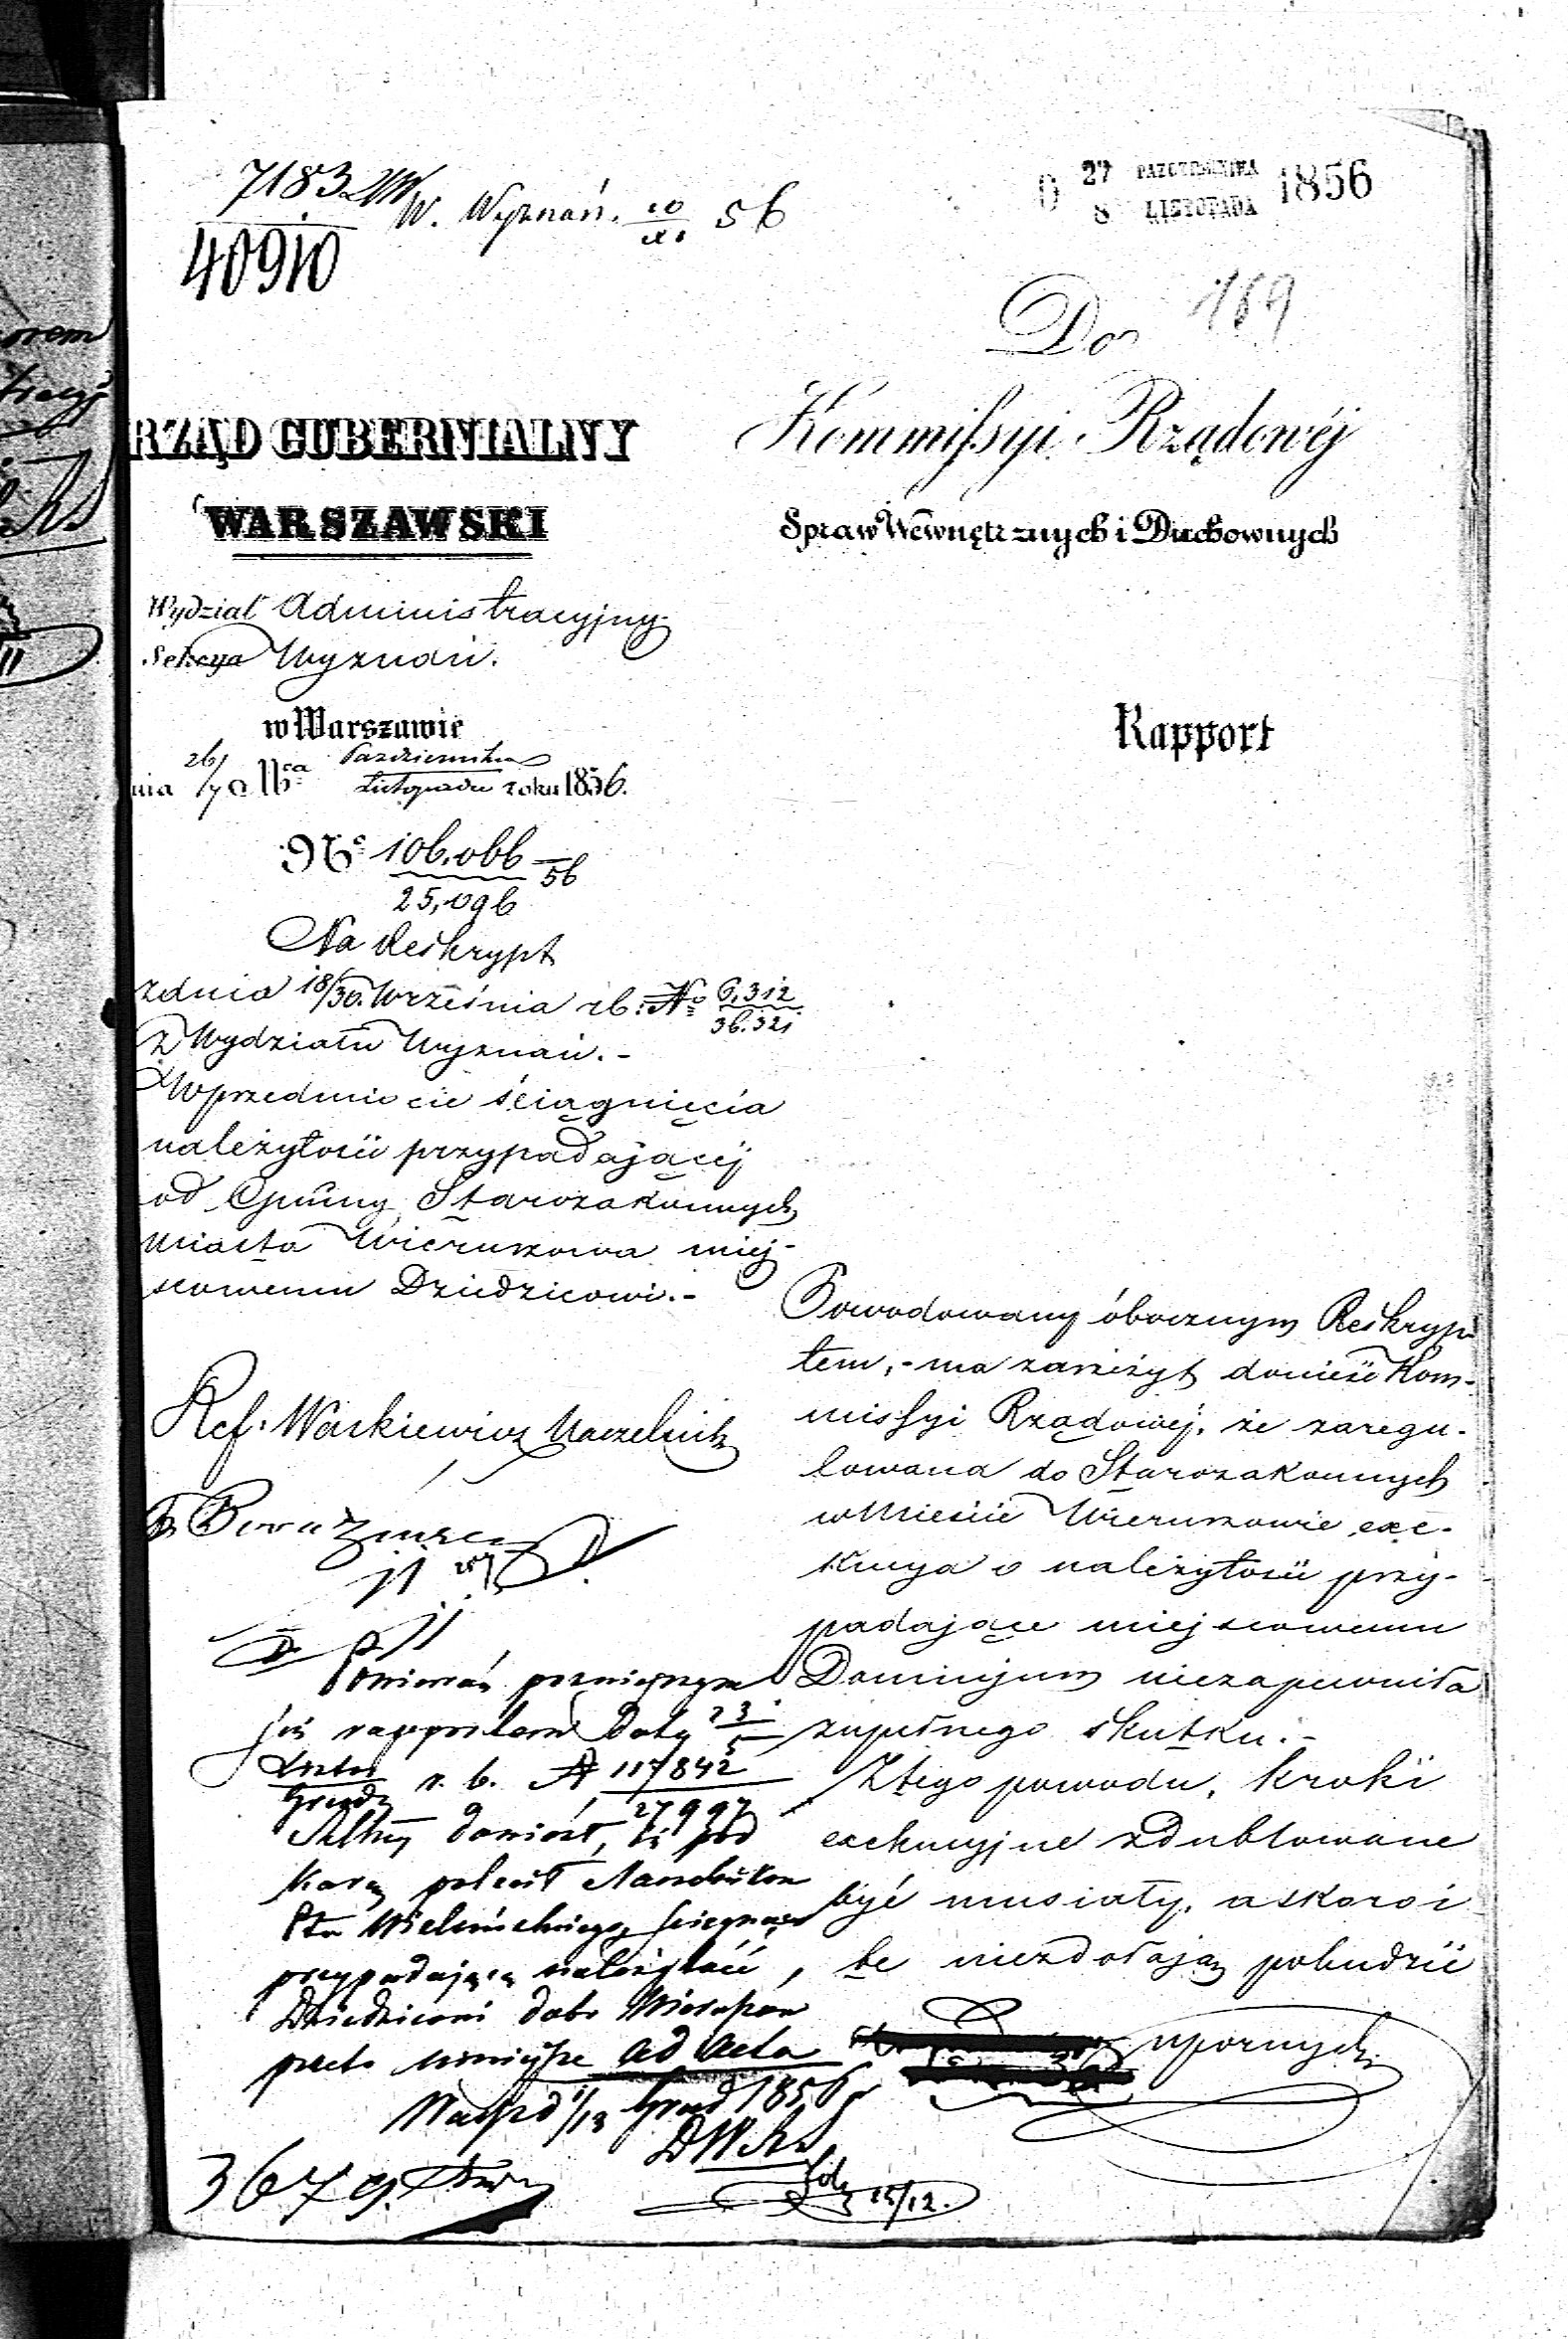 7183
40910
W. Wyznań. 10/XI 56
27 PAZDZIERNIKA
8 LISTOPADA 1856
169
Do
Kommissyi Rządowéj
Spraw Wewnętrznych i Duchownych
RZĄD GUBERNIALNY
WARSZAWSKI
Wydział Administracyjny.
Sekcya Wyznań.
w Warszawie
nia 26/7 Października
Listopada roku 1856.
Rapport
No 106,066/25,096 56
Na Reskrypt
z dnia 18/30. Września rb: No 6,312/36.321
z Wydziału Wyznań. -
W przedmiocie ściągnięcia
należytości przypadającéj
od Gminy Starozakonnych
miasta Wieruszowa miej-
scowemu Dziedzicowi. -
Ref. Waskiewicz Naczelnik
Powodowany óbocznym Reskryp
tem, - ma zaszczyt donieść Kom-
missyi Rządowéj, że zaregu-
lowana do Starozakonnych
w Mieście Wieruszowie exe-
kucya o należytości przy-
padające miejscowemu
Dominijum niezapewniła
zupełnego skutku. -
Z tego powodu, kroki
exekucyjne zdublowane
być musiały, a skoro i
te niezdołają pobudzić
upornych
Ponieważ późniejszym
już rapportem Daty 23/5
Listop/Grudz r. b. No 117842/27997
doniósł, że pod
karą polecił Naczelnikow
Ptu Wieluńskiego ściągnąć
przypadającą należytość,
Dziedzicowi dobr Wieruszow
przeto niniejsze ad acta
1/13 Grud 1856 r
DWKS
15/12.
3679.